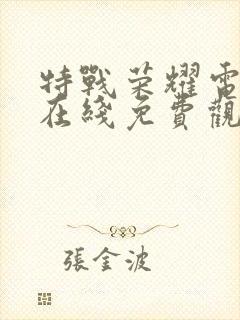 特戰荣耀電
在綫免費觀
張金波